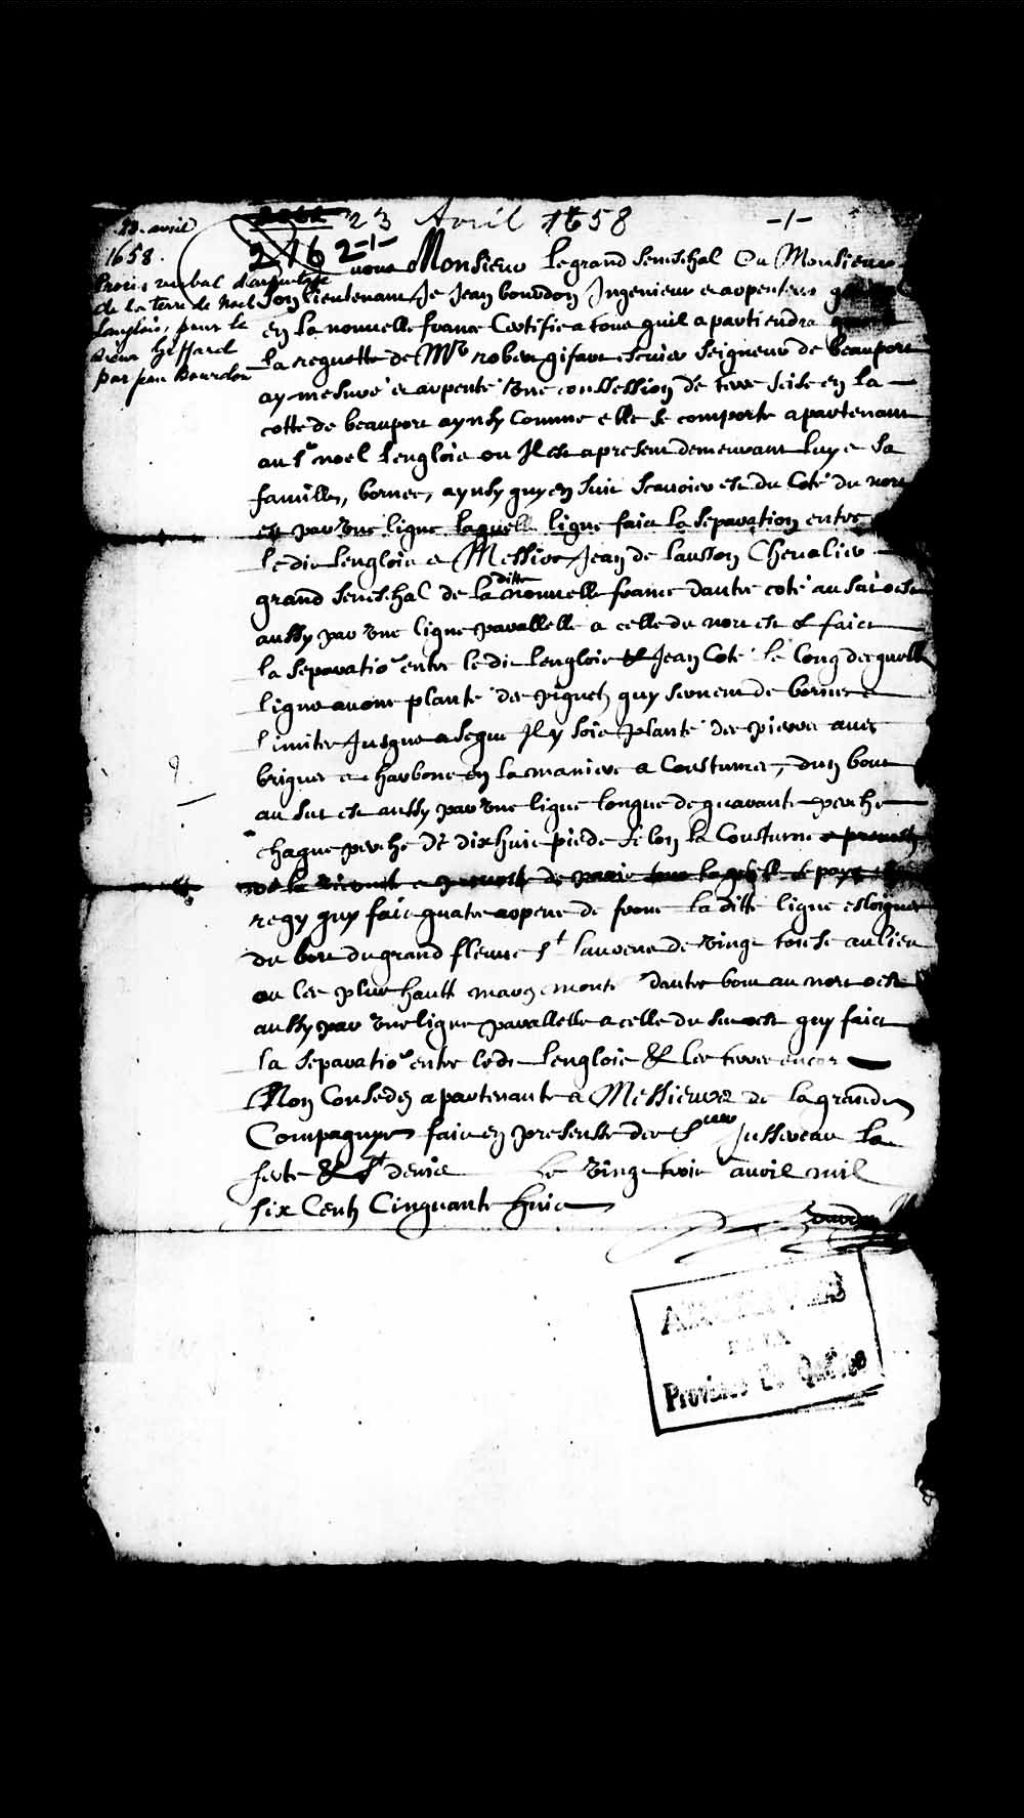 23 Avril 1658 -1-
23. avril
1658.
Procès verbal d'arpentage
de la terre de Noel
Langlois, pour le
Sieur Giffard
par Jean Bourdon
2162-1-
Monsieur Le grand seneschal Ou Monsieur
son lieutenant Je Jean bourdon Ingenieur et arpenteur
en la nouvelle france Certifie a tous quil apartiendra
La requette de Mr rober gifart escuier Seigneur de beauport
ay mesuré et arpenté Une consession de terre scise en la
cotte de beauport aynsy Comme elle se comporte apartenant
au Sr noel lenglois ou Il est apresent demeurant luy e sa
famille, bornee, aynsy quy en suit scavoir est du Coté du nort
est par Une ligne laquelle ligne faict La separation entre
Ledit lenglois e Messire Jean de lauson Chevalier
grand seneschal de la ditte nouvelle france dautre coté au suroest
aussy par Une ligne parallelle a celle du nort est & faict
la separatio entre ledit lenglois & Jean Coté le long desquelle
ligne avons planté des piquets quy serviront de bornes e
limites Jusque a se que Il y soit planté des pierres avec
briques et charbons en la maniere a Coustumee, dun bout
au sut est aussy par Une ligne longue de quarante perche
chaque perche de dix huit pieds selon la Coustume
regy quy faict quatre arpens de front la ditte ligne esloignee
du bort du grand fleuve St laurens de Vingt toise au lieu
ou les plus hautt marees monte dautre bout au nort oest
aussy par Une ligne parallelle a celle du suroest quy faict
la separatio entre ledit lenglois & les terres encor
Non Consedes apartenante a Messieurs de la grande
Compagnye faict en presense des Sieurs Jussereau la
ferte & St denis Le Vingt trois avril mil
six Cents Cinquante huict
Bourdon
ARCHIVES
DE LA
Province de Québec